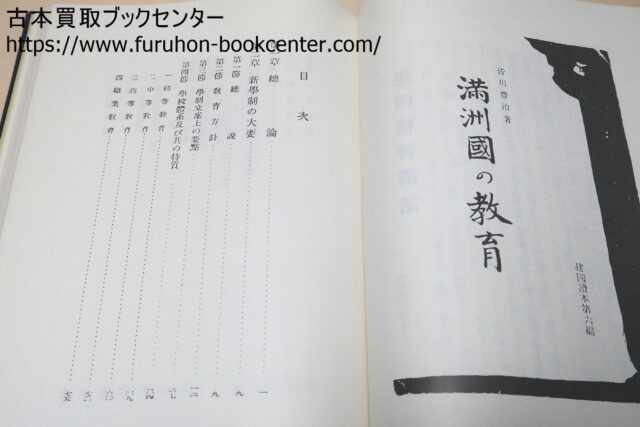 古本買取ブックセンター
https://www.furuhon-bookcenter.com/
皆川豊治著
満洲國の教育
建國讀本第六編
目次
章 總論 一
章 新學制の大要 九
第一節 總說 九
第二節 教育方針 九
第三節 學制立案上の要點
第四節 學校體系及び其の特質
一 初等教育
二 中等教育
三 高等教育
四 職業教育